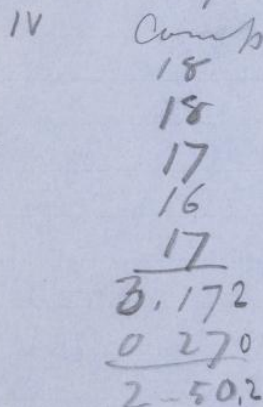 IV Comp
18
18
17
16
17
3.172
0 270
2-50.2